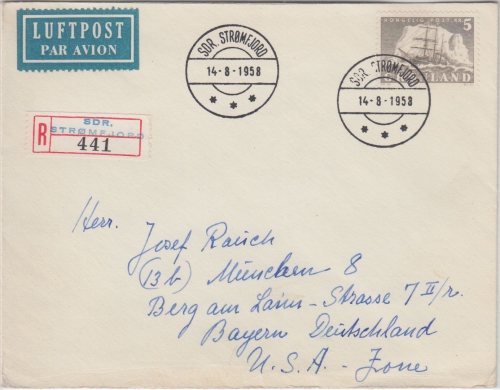 LUFTPOST
PAR AVION
SDR. STRØMFJORD
14-8-1958
KONGELIG POST 5
SDR. STRØMFJORD
14-8-1958
R
SDR.
STRØMFJORD
441
Herr.
Josef Rauch
(13b) München 8
Berg am Laim-Strasse 7 II/r.
Bayern Deutschland
U.S.A- Zone